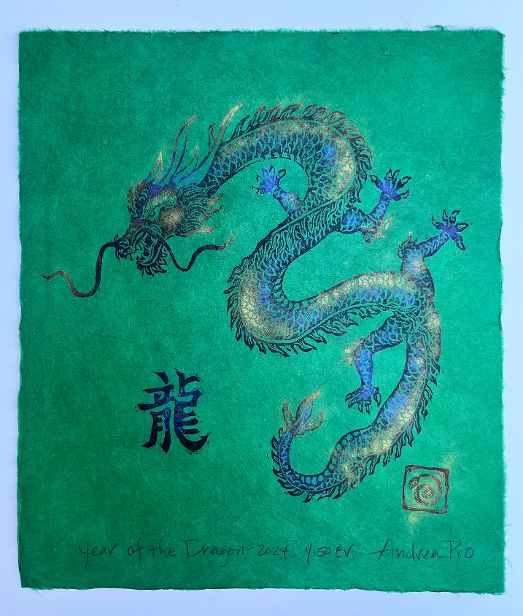 龍
Year of the Dragon-2024 1/150 EV Andrea Pro